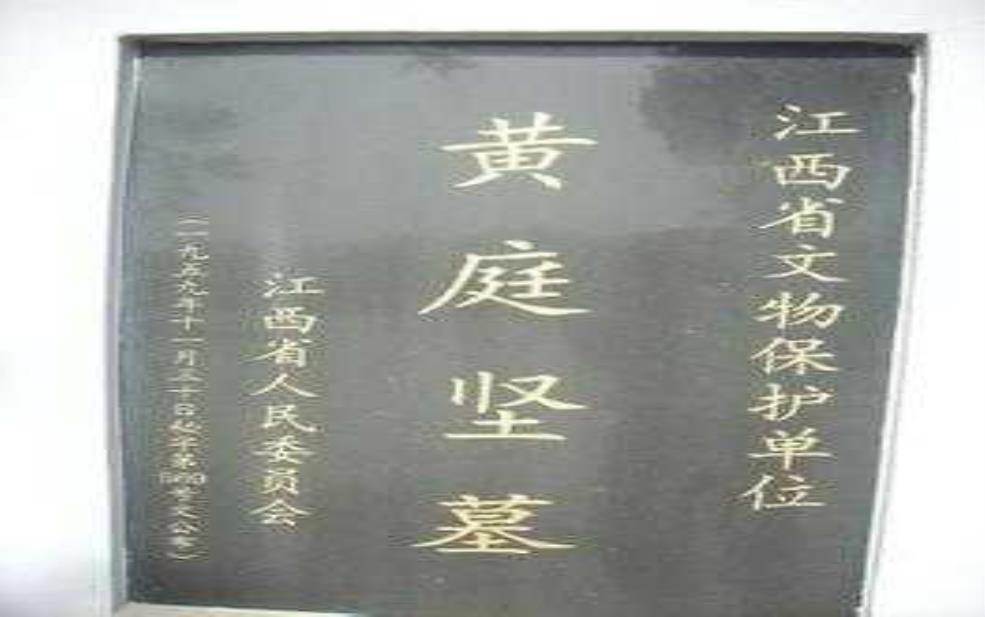 江西省文物保护单位
黄庭坚墓
江西省人民委员会
(一九五九年十一月三十日